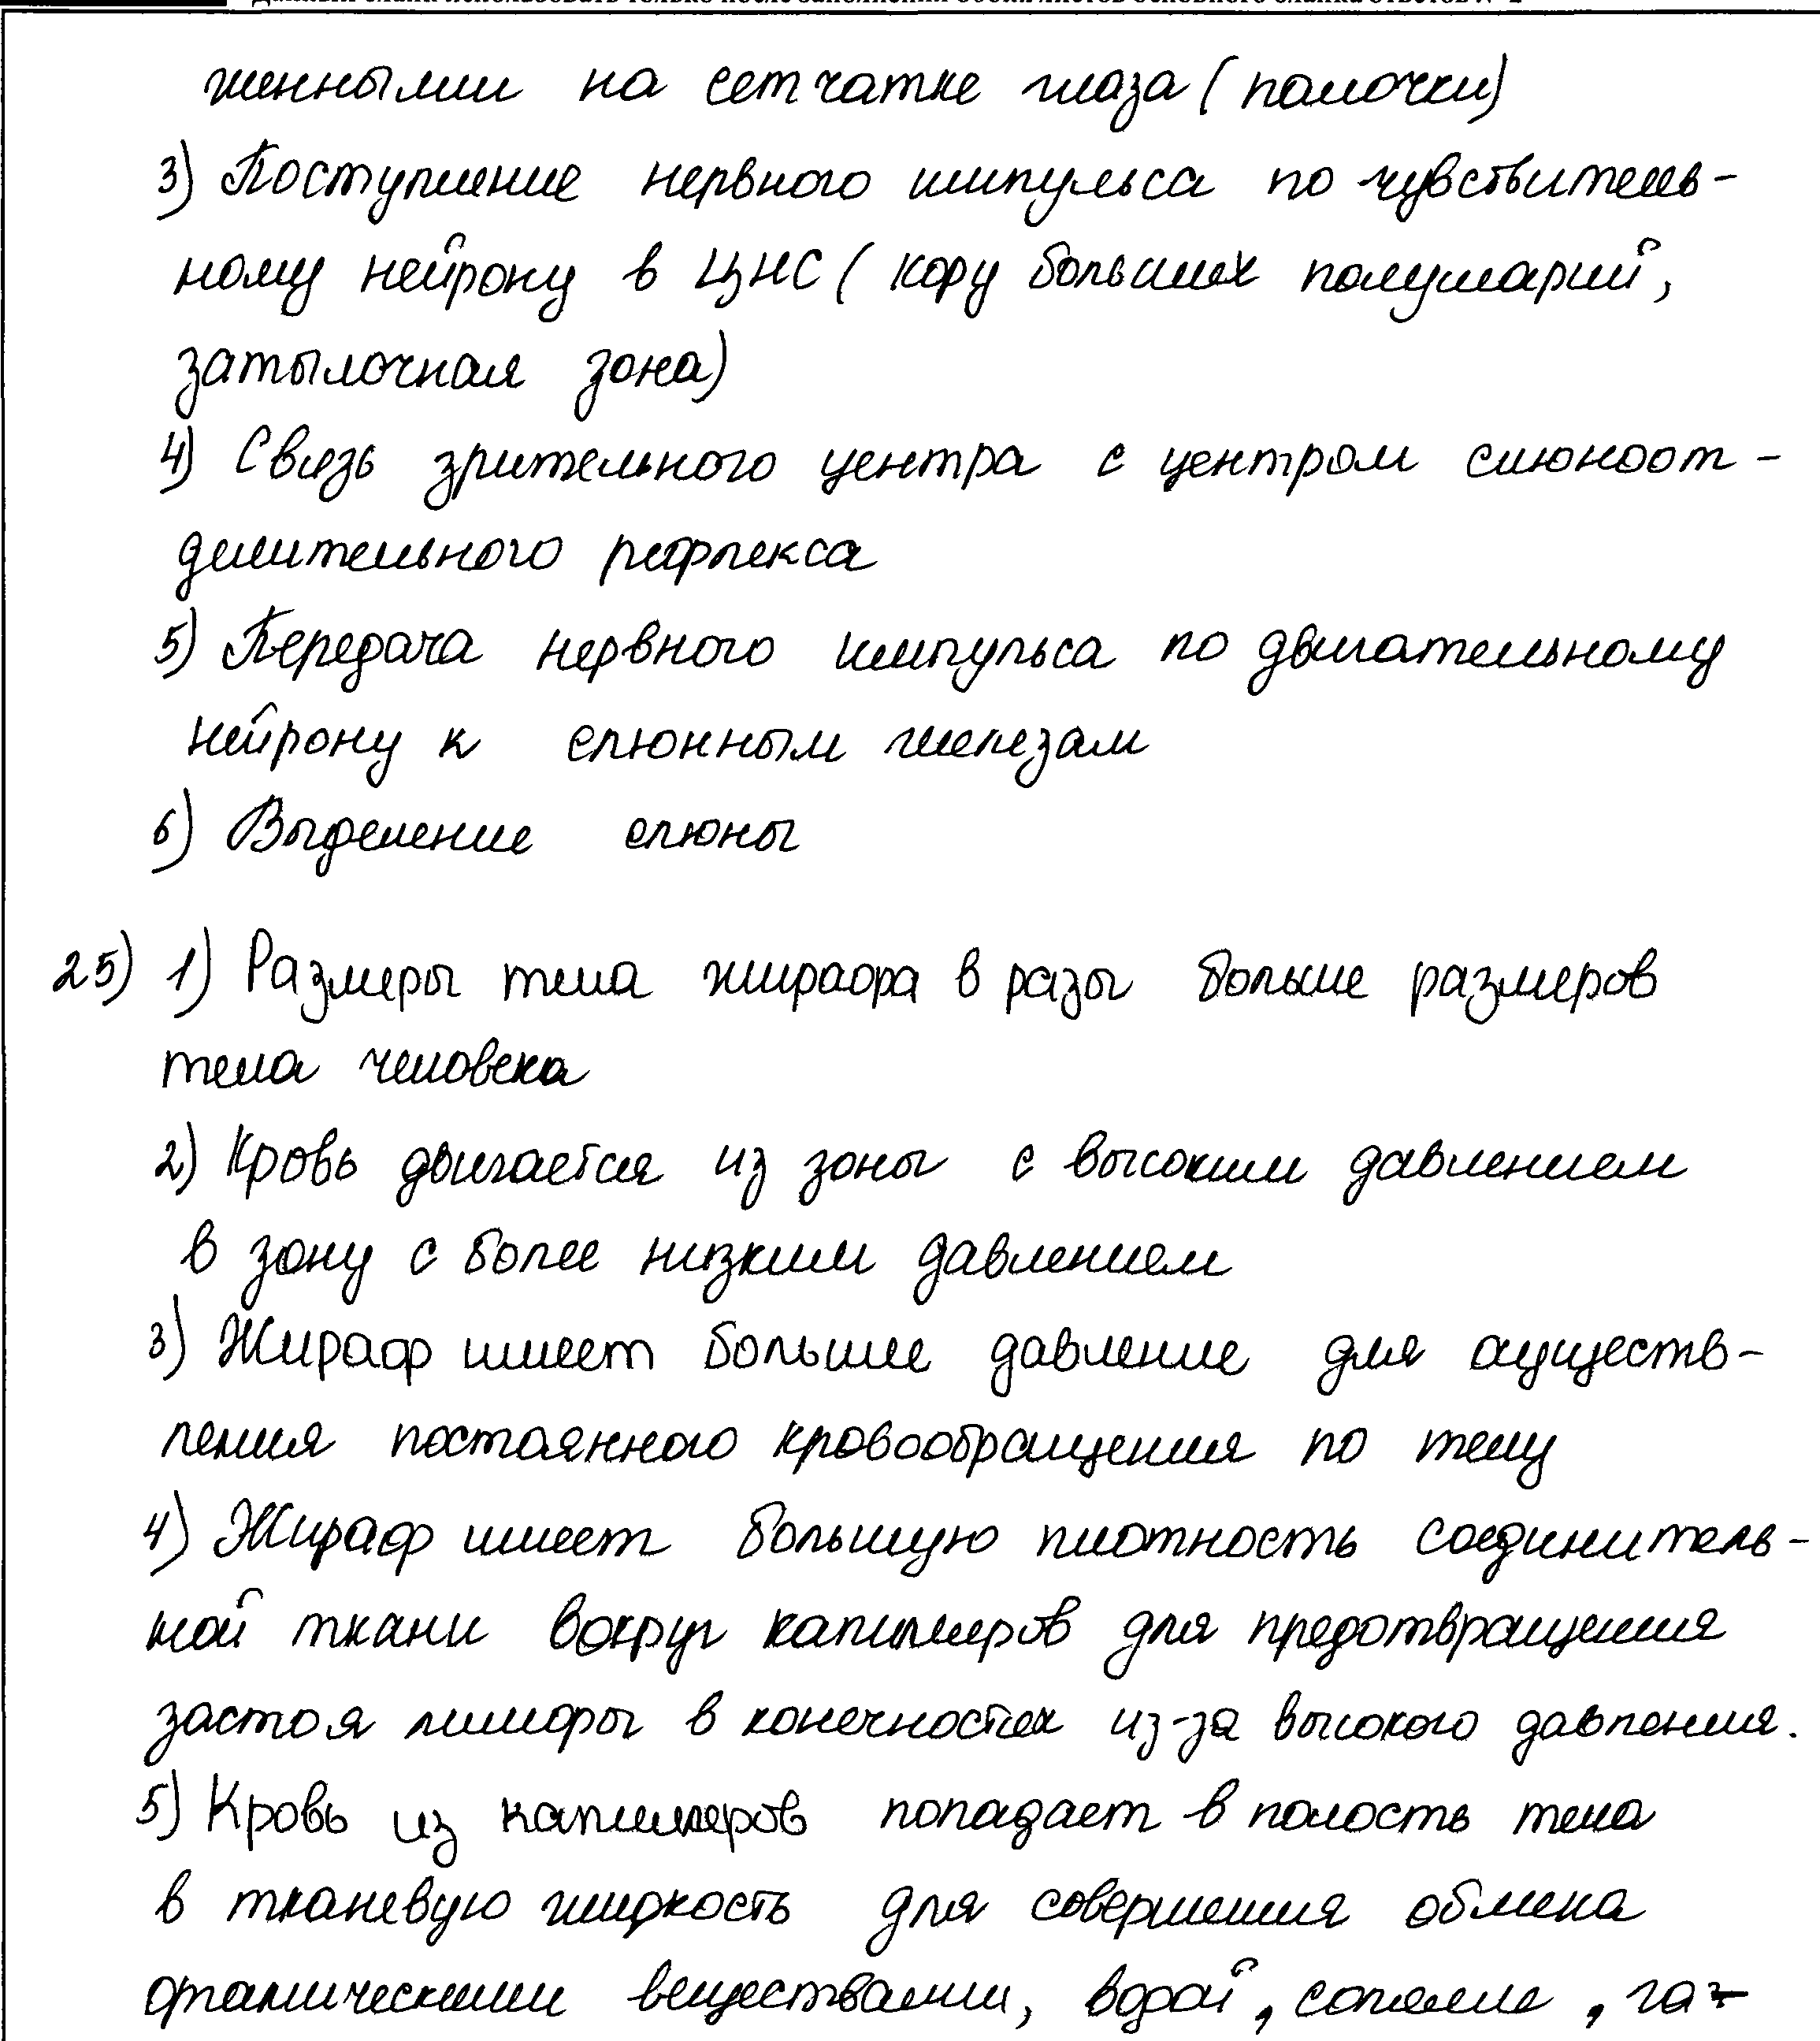 Данный бланк использовать только после заполнения обоих листов основного бланка ответов № 2
женными на сетчатке глаза (палочки)
3) Поступление нервного импульса по чувствитель-
ному нейрону в ЦНС (кору больших полушарий,
затылочная зона)
4) Связь зрительного центра с центром слюноот-
делительного рефлекса
5) Передача нервного импульса по двигательному
нейрону к слюнным железам
6) Выделение слюны
25) 1) Размеры тела жирафа в разы больше размеров
тела человека
2) Кровь двигается из зоны с высоким давлением
в зону с более низким давлением
3) Жираф имеет большее давление для осуществ-
ления постоянного кровообращения по телу
4) Жираф имеет большую плотность соединитель-
ной ткани вокруг капилляров для предотвращения
застоя лимфы в конечностях из-за высокого давления.
5) Кровь из капилляров попадает в полость тела
в тканевую жидкость для совершения обмена
органическими веществами, водой, солями, га-